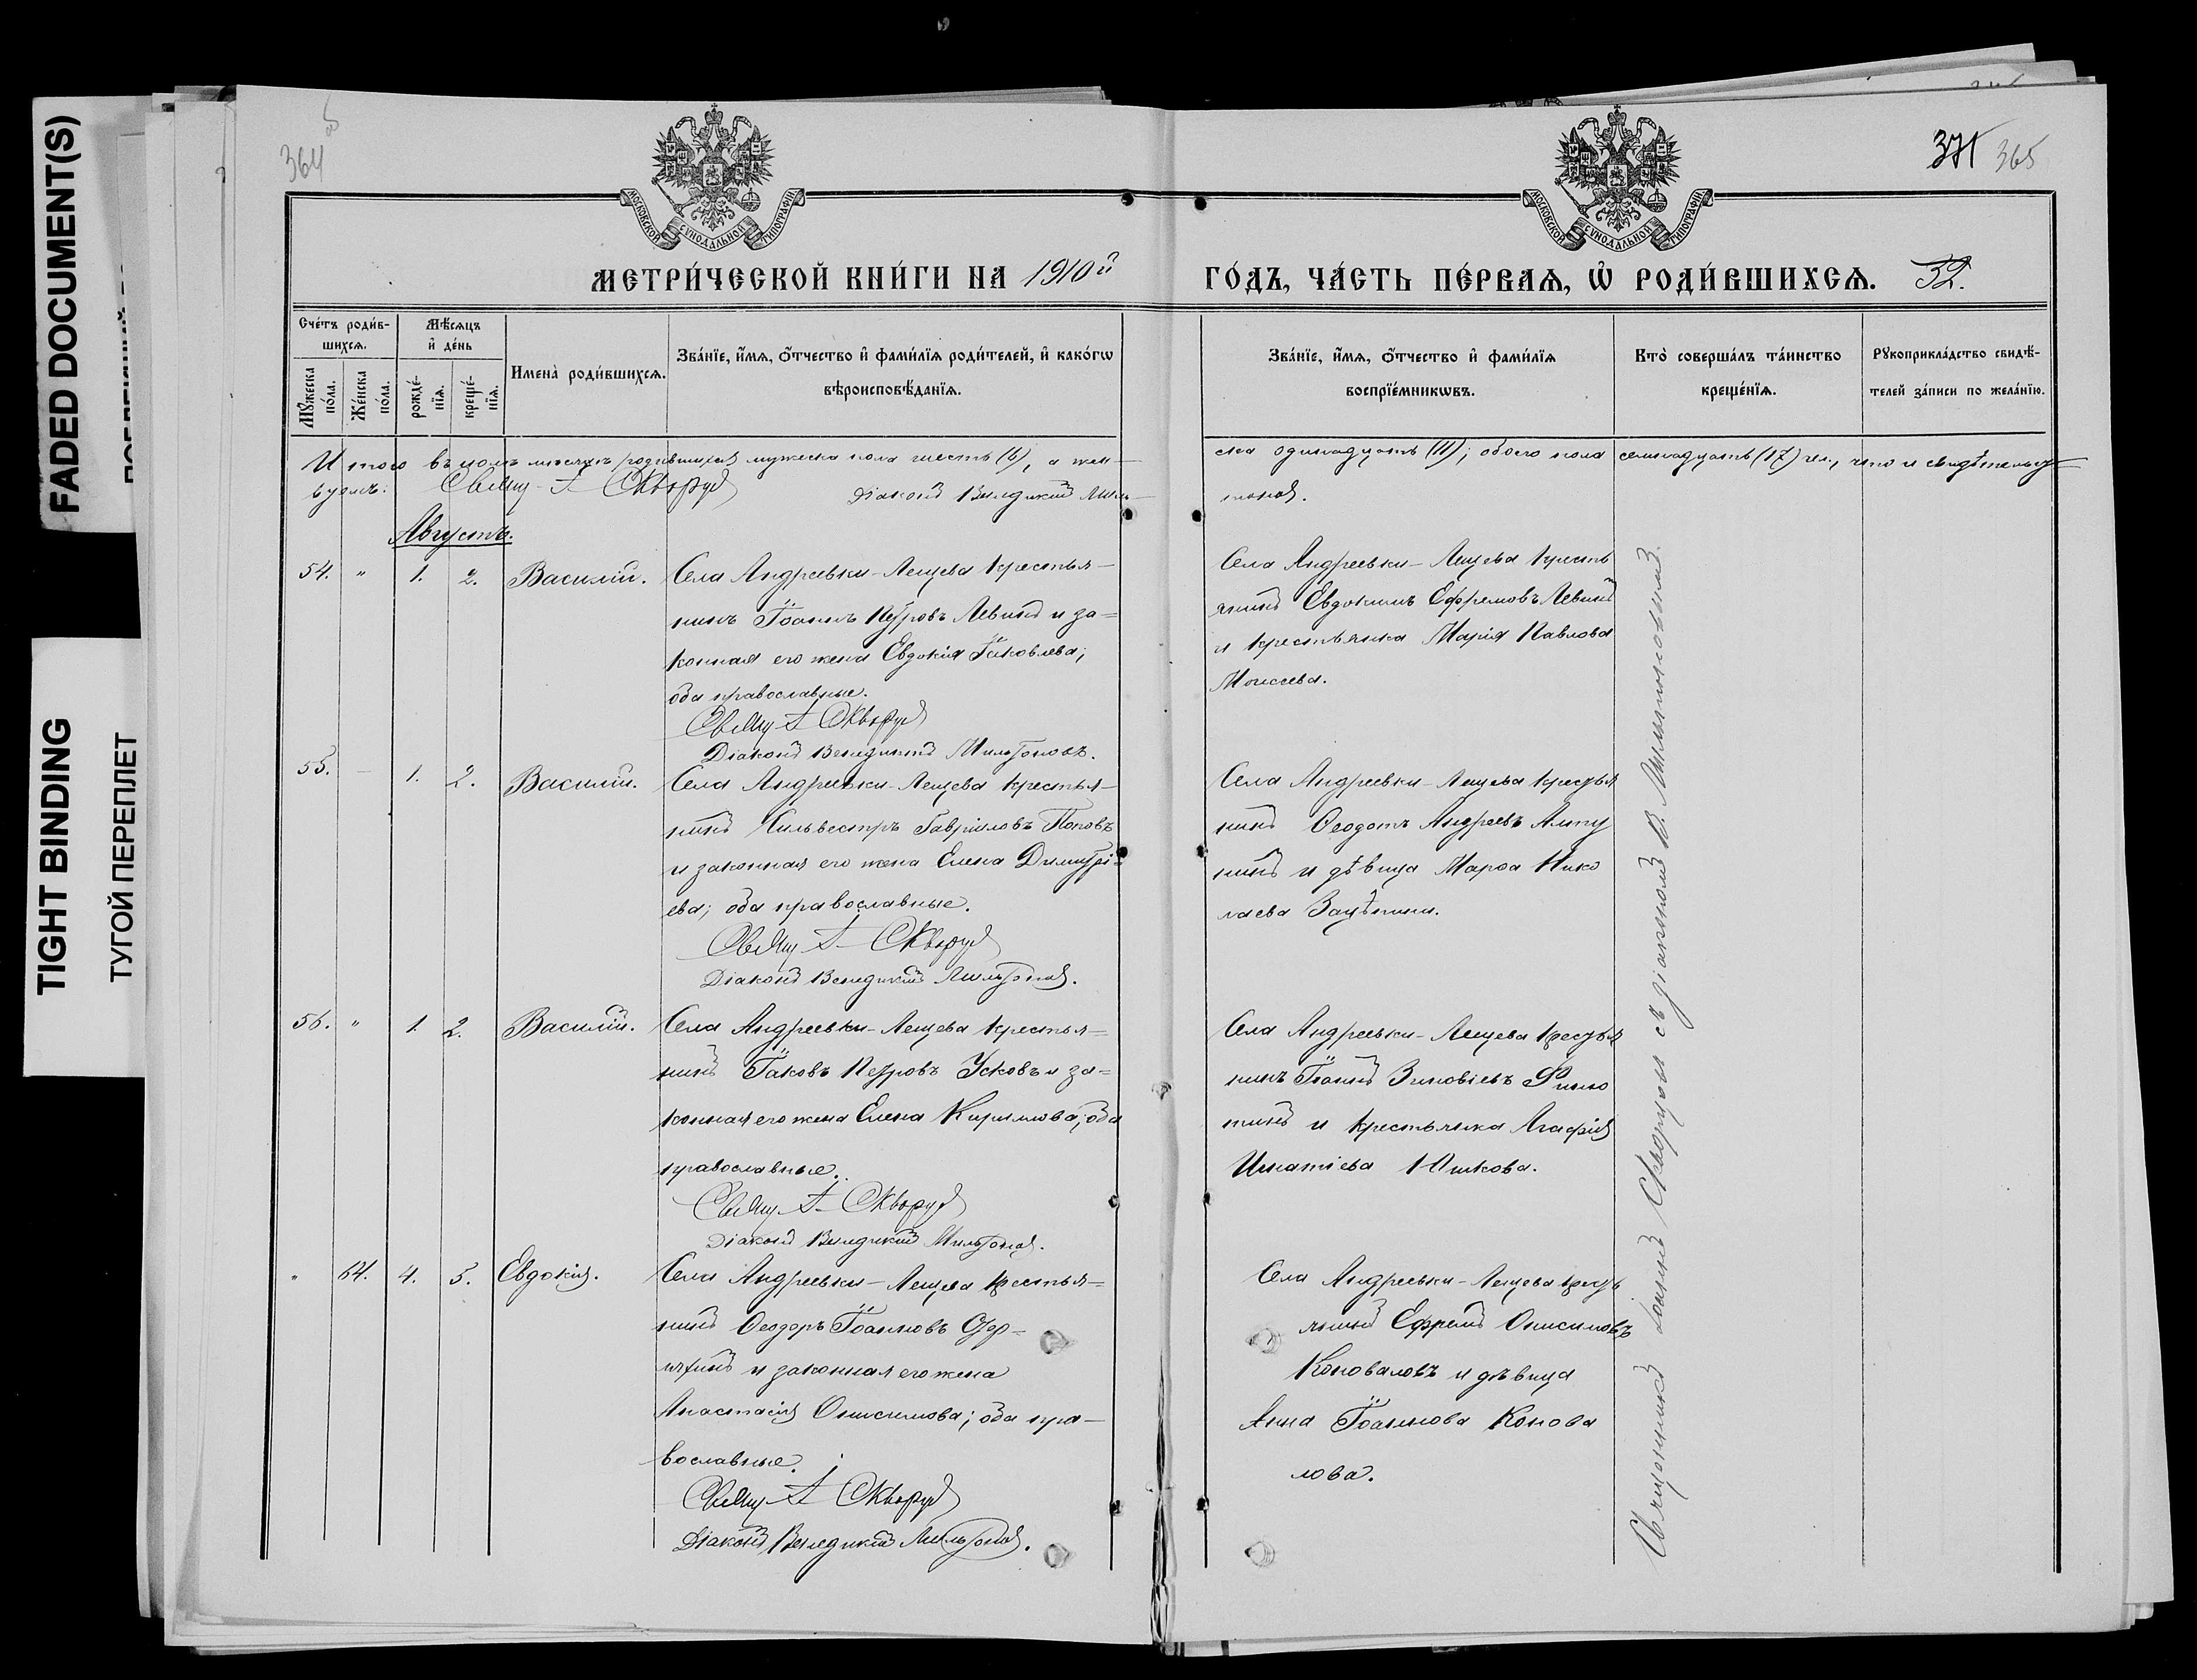 FADED DOCUMENT(S)
TIGHT BINDING
ТУГОЙ ПЕРЕПЛЕТ
364
371 365
МОСКОВСКОЙ СѴНОДАЛЬНОЙ ТИПОГРАФІИ
МОСКОВСКОЙ СѴНОДАЛЬНОЙ ТИПОГРАФІИ
МЕТРИ́ЧЕСКОЙ КНИ́ГИ НА 1910й
ГО́ДЪ, ЧА́СТЬ ПЕ́РВАѦ, Ѡ҆ РОДИ́ВШИХСѦ. 32.
Сче́тъ роди́в-
шихсѧ.
Мꙋ́жеска по́ла.
Же́нска по́ла.
Мѣ́сѧцъ
и҆ де́нь
рожде́-
нїѧ.
креще́-
нїѧ.
Имена̀ роди́вшихсѧ.
Зва́нїе, и҆́мѧ, ѻ҆́тчество и҆ фами́лїѧ роди́телей, и҆ како́гѡ
вѣроисповѣ́данїѧ.
Зва́нїе, и҆́мѧ, ѻ҆́тчество и҆ фами́лїѧ
воспрїе́мникѡвъ.
Кто̀ соверша́лъ та́инство
креще́нїѧ.
Рꙋкоприкла́дство свидѣ́-
телей за́писи по жела́нїю.
Итого въ іюлѣ мѣсяцѣ родившихся мужеска пола шесть (6), а жен-
ска одинадцать (11); обоего пола семнадцать (17) чел., что и свидѣтельст-
вуемъ. Свящ. І. Скворцовъ Діаконъ Венедиктъ Миль-
тоновъ.
Августъ.
54. " 1. 2. Василій.
Села Андреевки-Лещева крестья-
нинъ Іоаннъ Петровъ Левинъ и за-
конная его жена Евдокія Іаковлева;
оба православные.
Свящ. І. Скворцовъ
Діаконъ Венедиктъ Мильтоновъ.
Села Андреевки-Лещева кресть
янинъ Евдокимъ Ефремовъ Левинъ
и крестьянка Марія Павлова
Моисеева.
55. — 1. 2. Василій.
Села Андреевки-Лещева крестья-
нинъ Сильвестръ Гавріиловъ Поповъ
и законная его жена Елена Димитрі-
ева; оба православные.
Свящ. І. Скворцовъ
Діаконъ Венедиктъ Мильтоновъ.
Села Андреевки-Лещева крестья
нинъ Ѳеодотъ Андреевъ
и дѣвица Марѳа Нико
лаева
56. " 1. 2. Василій.
Села Андреевки-Лещева крестья-
нинъ Іаковъ Петровъ Усковъ и за-
конная его жена Елена Кириллова; оба
православные.
Свящ. І. Скворцовъ
Діаконъ Венедиктъ Мильтоновъ.
Села Андреевки-Лещева крестья
нинъ Іоаннъ Зиновіевъ
и крестьянка Агафія
Игнатіева Юшкова.
" 64. 4. 5. Евдокія.
Села Андреевки-Лещева крестья-
нинъ Ѳеодоръ Іоанновъ
и законная его жена
Анастасія Онисимова; оба пра-
вославные.
Свящ. І. Скворцовъ
Діаконъ Венедиктъ Мильтоновъ.
Села Андреевки-Лещева кресть
янинъ Ефремъ Онисимовъ
Коноваловъ и дѣвица
Анна Іоаннова Конова
лова.
Священникъ Іоаннъ Скворцовъ съ діакономъ В. Мильтоновымъ.